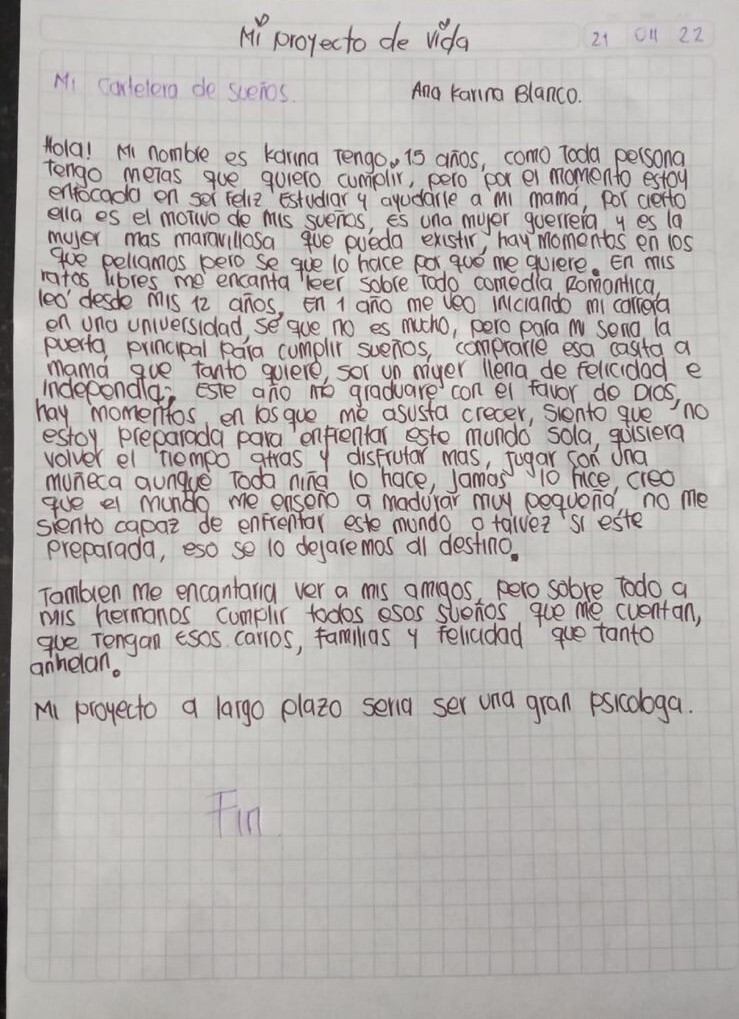 Mi proyecto de vida
21 04 22
Mi cartelera de sueños.
Ana Karina Blanco.
Hola! Mi nombre es Karina Tengo 15 años, como Toda persona
Tengo metas que quiero cumplir, pero por el momento estoy
enfocada en ser Feliz Estudiar y ayudarle a mi mamá, por cierto
ella es el motivo de mis sueños, es una mujer guerrera y es la
mujer mas maravillosa que pueda existir, hay momentos en los
que peliamos pero se que lo hace por que me quiere. En mis
ratos libres me encanta leer sobre Todo comedia Romantica,
leo desde mis 12 años, En 1 año me veo iniciando mi carrera
en una universidad, se que no es mucho, pero para mi seria la
puerta principal para cumplir sueños, comprarle esa casita a
mamá que tanto quiere, ser un mujer llena de felicidad e
independia; Este año me graduare con el favor de Dios,
hay momentos en los que me asusta crecer, siento que no
estoy preparada para enfrentar este mundo sola, quisiera
volver el tiempo atras y disfrutar mas, jugar con una
muñeca aunque Toda niña lo hace, jamas lo hice, creo
que el mundo me enseño a madurar muy pequeña, no me
siento capaz de enfrentar este mundo o talvez si este
preparada, eso se lo dejaremos al destino.
Tambien me encantaria ver a mis amigos, pero sobre Todo a
mis hermanos cumplir todos esos sueños que me cuentan,
que Tengan Esos carros, familias y felicidad que tanto
anhelan.
Mi proyecto a largo plazo seria ser una gran psicologa.
Fin.